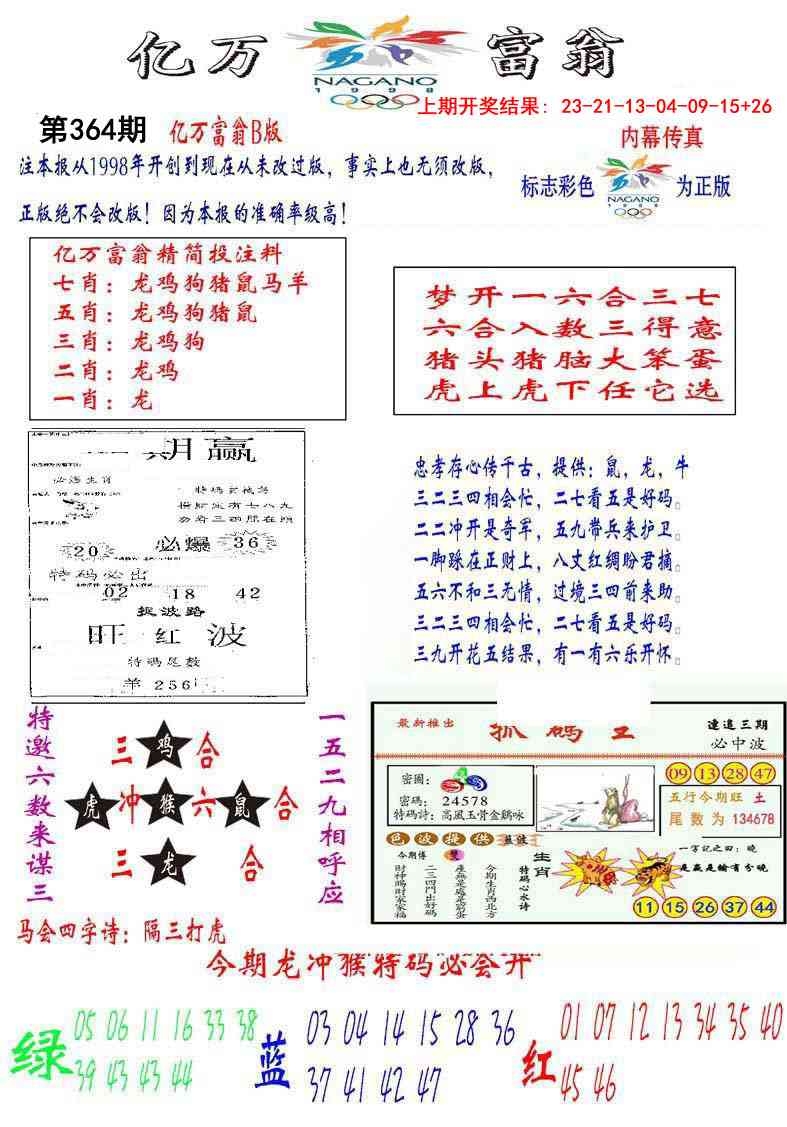 亿万
富翁
NAGANO
1998
上期开奖结果: 23-21-13-04-09-15+26
第364期 亿万富翁B版
内幕传真
注本报从1998年开创到现在从未改过版，事实上也无须改版，
正版绝不会改版！因为本报的准确率级高！
标志彩色
NAGANO
1998
为正版
亿万富翁精简投注料
七肖：龙鸡狗猪鼠马羊
五肖：龙鸡狗猪鼠
三肖：龙鸡狗
二肖：龙鸡
一肖：龙
梦开一六合三七
六合入数三得意
猪头猪脑大笨蛋
虎上虎下任它选
期赢
必爆生肖
20 必爆 36
特码必出
02 18 42
捉波路
旺红波
特码尾数
羊 256
忠孝存心传千古，提供：鼠，龙，牛
三二三四相会忙，二七看五是好码。
二二冲开是奇军，五九带兵来护卫。
一脚踩在正财上，八丈红绸盼君摘。
五六不和三无情，过境三四前来助。
三二三四相会忙，二七看五是好码。
三九开花五结果，有一有六乐开怀。
特邀六数来谋三
三 鸡 合
虎 冲 猴 六 鼠 合
三 龙 合
一五二九相呼应
马会四字诗：隔三打虎
最新推出
抓码王
连追三期
必中波
09 13 28 47
密圖:
密碼: 24578
特碼詩: 高風玉骨金鷄咏
五行今期旺 土
尾数为 134678
色波提供 蓝波
今期博 雙
財神賜財家家福
二三四門出好碼
今期生肖西北方
生肖
特码心水诗
一字記之曰: 曉
是贏是輸有分曉
11 15 26 37 44
今期龙冲猴特码必会开
绿
05 06 11 16 33 38
39 43 43 44
蓝
03 04 14 15 28 36
37 41 42 47
红
01 07 12 13 34 35 40
45 46